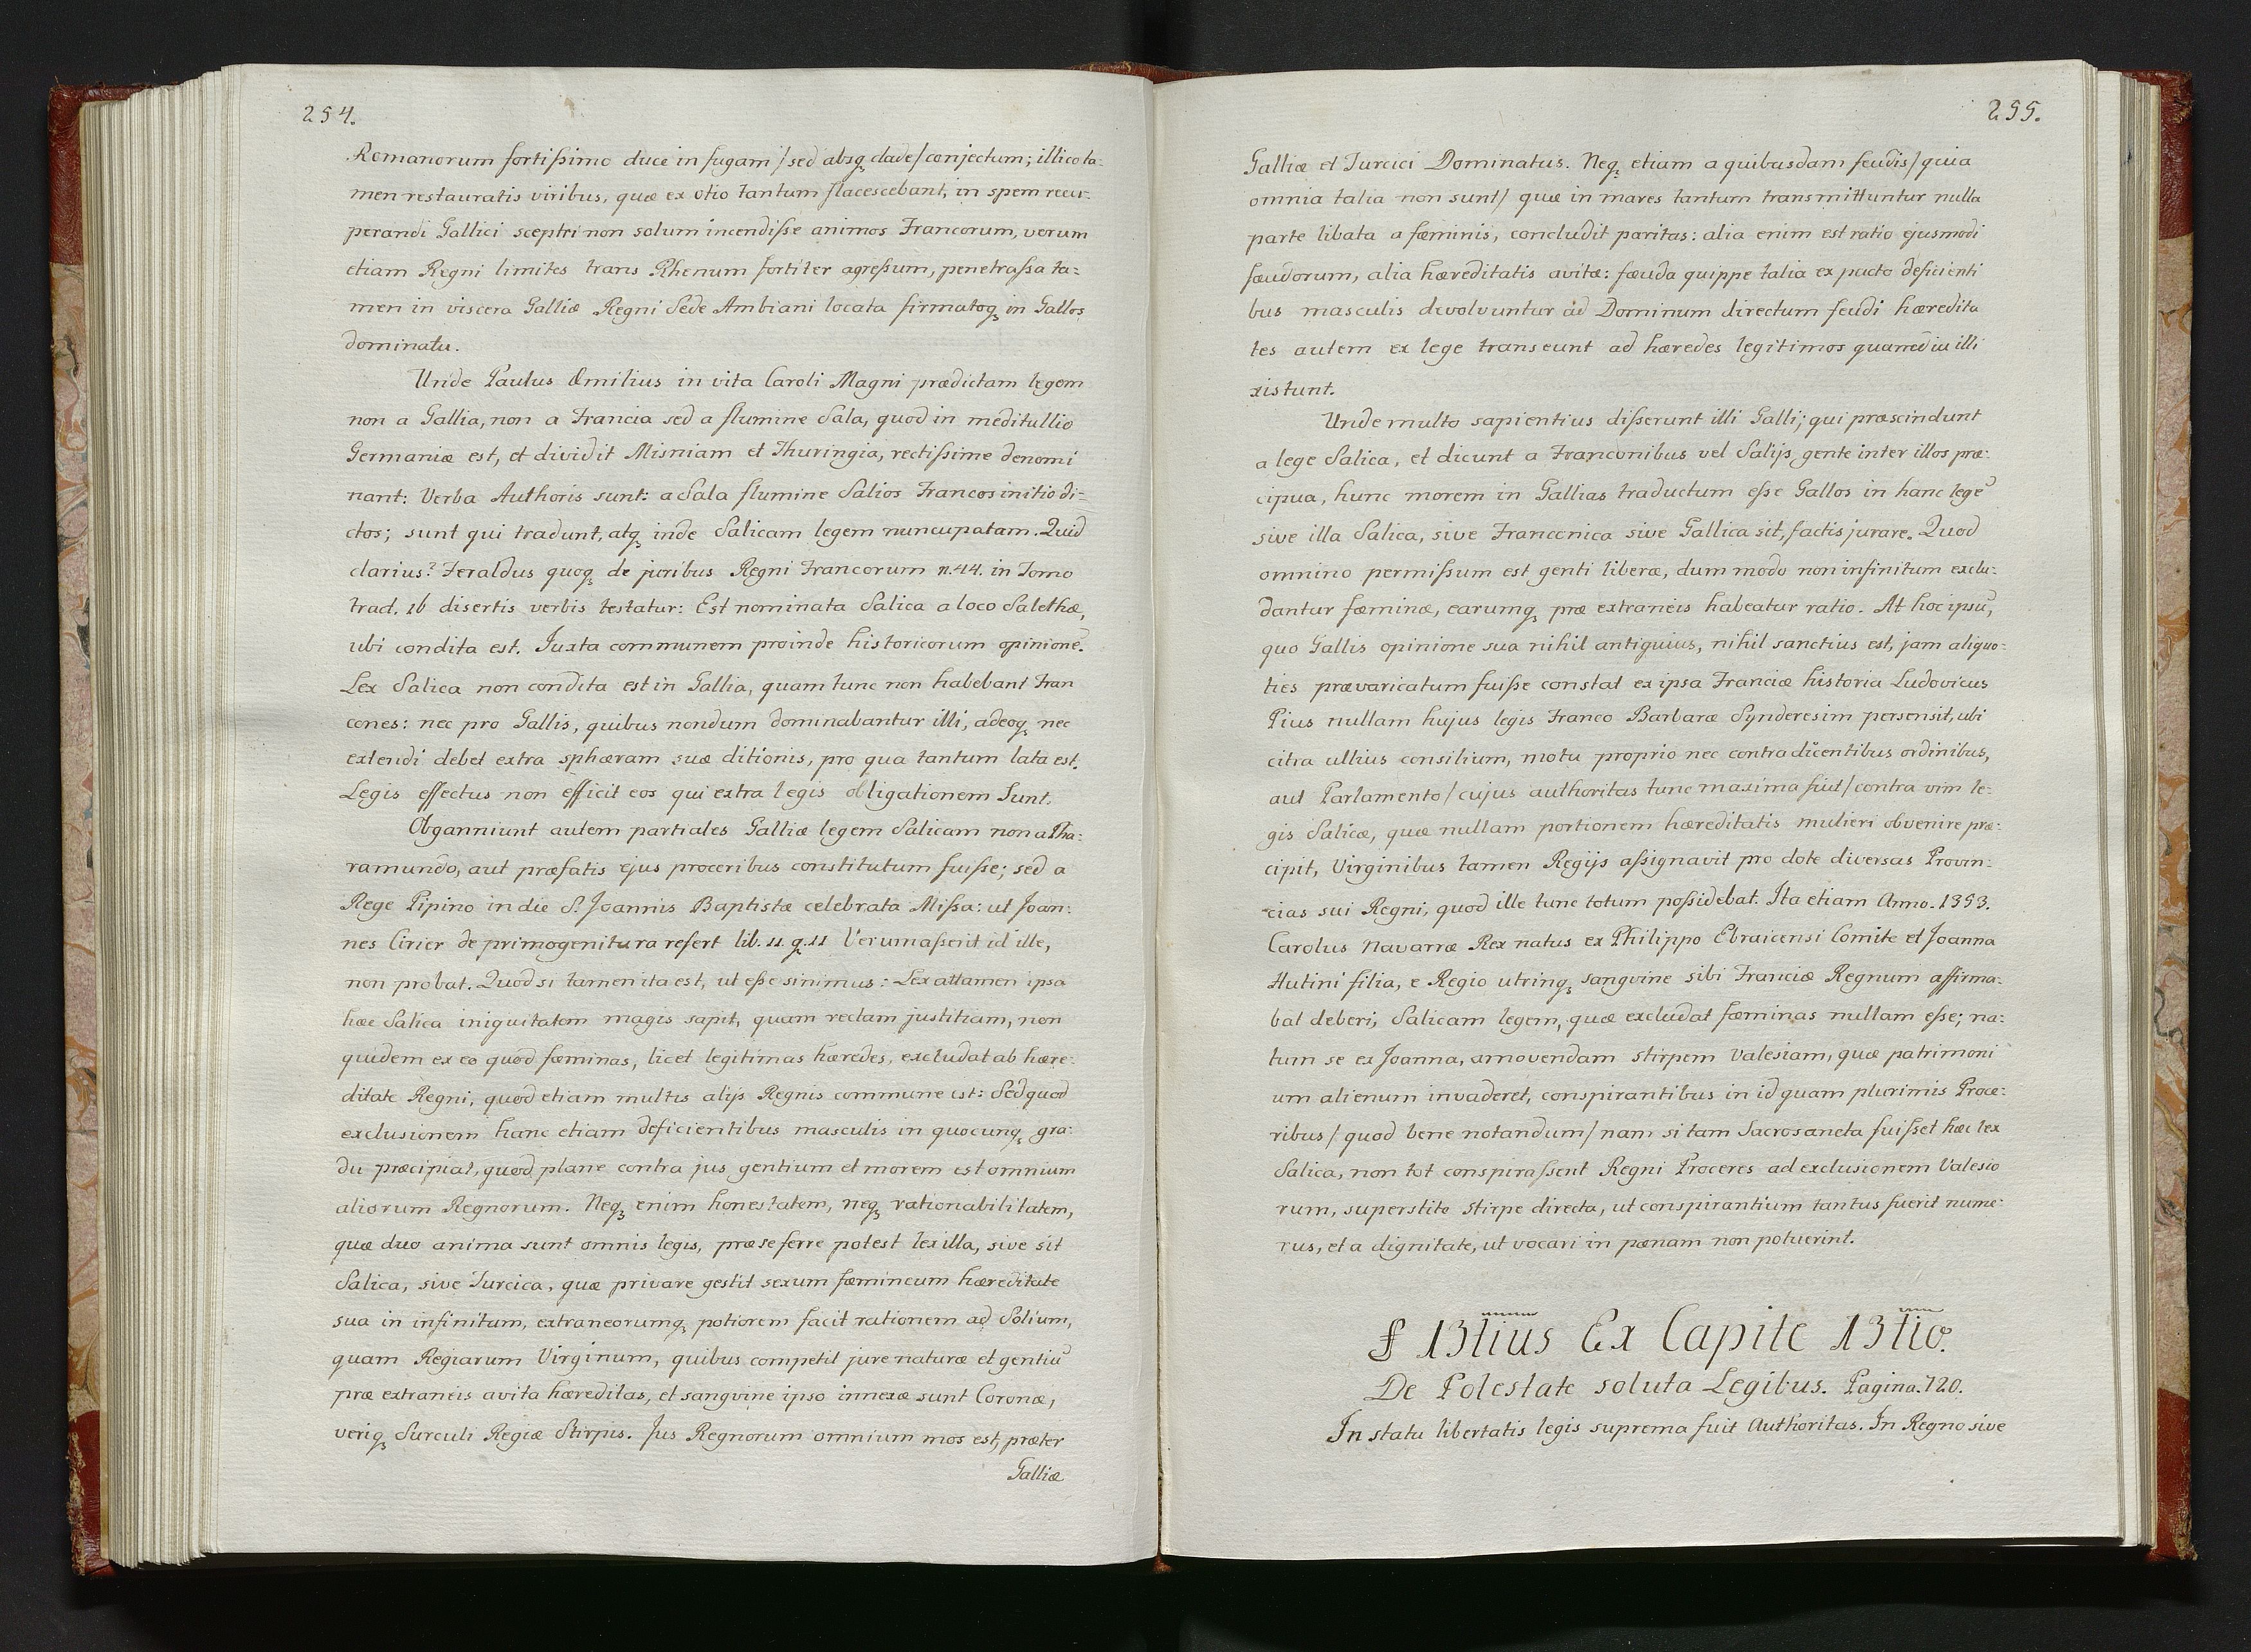 254.
Romanorum fortißimo duce in fugam / sed absqꝫ clade / conjectum; illico ta=
men restauratis viribus, quæ ex otio tantum flacescebant, in spem recu=
perandi Gallici sceptri non solum incendiße animos Francorum, verum
etiam Regni limites trans Rhenum fortiter agreßum, penetraßa ta=
men in viscera Galliæ Regni Sede Ambiani locata firmatoqꝫ in Gallos
dominatu.
Unde Paulus Æmilius in vita Caroli Magni prædictam legem
non a Gallia, non a Francia sed a flumine Sala, quod in meditullio
Germaniæ est, et dividit Misniam et Thuringia, rectißime denomi
nant: Verba Authoris sunt: a Sala flumine Salios Francos initio di=
ctos; sunt qui tradunt, atqꝫ inde Salicam legem nuncupatam. Quid
clarius? Feraldus quoqꝫ de juribus Regni Francorum n. 44. in Tomo
trad. 16 disertis verbis testatur: Est nominata Salica a loco Salethæ,
ubi condita est. Juxta communem proinde historicorum opinionē.
Lex Salica non condita est in Gallia, quam tunc non habebant Fran
cones: nec pro Gallis, quibus nondum dominabantur illi, adeoqꝫ nec
extendi debet extra sphæram suæ ditionis, pro qua tantum lata est.
Legis effectus non efficit eos qui extra legis obligationem Sunt.
Obganniunt autem partiales Galliæ legem Salicam non a Pha=
ramundo, aut præfatis ejus proceribus constitutum fuiße; sed a
Rege Pipino in die S. Joannis Baptistæ celebrata Mißa: ut Joan=
nes Cirier de primogenitura refert lib. 11. q. 11 Verum aßerit id ille,
non probat. Quod si tamen ita est, ut eße sinimus: Lex attamen ipsa
hæc Salica iniquitatem magis sapit, quam rectam justitiam, non
quidem ex eo quod fæminas, licet legitimas hæredes, excludat ab hære=
ditate Regni, quod etiam multis alijs Regnis commune est: Sed quod
exclusionem hanc etiam deficientibus masculis in quocunqꝫ gra=
du præcipiat, quod plane contra jus gentium et morem est omnium
aliorum Regnorum. Neqꝫ enim honestatem, neqꝫ rationabilitatem,
quæ duo anima sunt omnis legis, præ se ferre potest lex illa, sive sit
Salica, sive Turcica, quæ privare gestit sexum fæmineum hæreditate
sua in infinitum, extraneorumqꝫ potiorem facit rationem ad Solium,
quam Regiarum Virginum, quibus competit jure naturæ et gentiū
præ extraneis avita hæreditas, et sangvine ipso innexæ sunt Coronæ,
veriqꝫ Surculi Regiæ Stirpis. Jus Regnorum omnium mos est, præter
Galliæ
255.
Galliæ et Turcici Dominatus. Neqꝫ etiam a quibusdam feudis / quia
omnia talia non sunt / quæ in mares tantum transmittuntur nulla
parte libata a fæminis, concludit paritas: alia enim est ratio ejusmodi
fæudorum, alia hæreditatis avitæ: fæuda quippe talia ex pacto deficienti
bus masculis devolvuntur ad Dominum directum feudi hæredita
tes autem ex lege transeunt ad hæredes legitimos quamdiu illi
xistunt.
Unde multo sapientius dißerunt illi Galli; qui præscindunt
a lege Salica, et dicunt a Franconibus vel Salijs gente inter illos præ=
cipua, hunc morem in Gallias traductum eße Gallos in hanc legē
sive illa Salica, sive Franconica sive Gallica sit, factis jurare. Quod
omnino permißum est genti liberæ, dum modo non infinitum exclu=
dantur fæminæ, earumqꝫ præ extraneis habeatur ratio. At hoc ipsū,
quo Gallis opinione sua nihil antiquius, nihil sanctius est, jam aliquo=
ties prævaricatum fuiße constat ex ipsa Franciæ historia Ludovicus
Pius nullam hujus legis Franco Barbaræ Synderesim persensit, ubi
citra ullius consilium, motu proprio nec contradicentibus ordinibus,
aut Parlamento / cujus authoritas tunc maxima fuit / contra vim le=
gis Salicæ, quæ nullam portionem hæreditatis mulieri obvenire præ=
cipit, Virginibus tamen Regijs aßignavit pro dote diversas Provin=
cias sui Regni, quod ille tunc totum poßidebat. Ita etiam Anno. 1353.
Carolus Navarræ Rex natus ex Philippo Ebraicensi Comite et Joanna
Hutini filia, e Regio utrinqꝫ sangvine sibi Franciæ Regnum affirma=
bat deberi; Salicam legem, quæ excludat fæminas nullam eße; na=
tum se ex Joanna, amovendam stirpem Valesiam, quæ patrimoni
um alienum invaderet, conspirantibus in id quam plurimis Proce=
ribus / quod bene notandum / nam si tam Sacrosancta fuißet hæc lex
Salica, non tot conspiraßent Regni Proceres ad exclusionem Valesio
rum, superstite stirpe directa, ut conspirantium tantus fuerit nume=
rus, et a dignitate, ut vocari in pænam non potuerint.
§ 13tius Ex Capite 13tio.
De Potestate soluta Legibus. Pagina. 120.
In statu libertatis legis suprema fuit Authoritas. In Regno sive